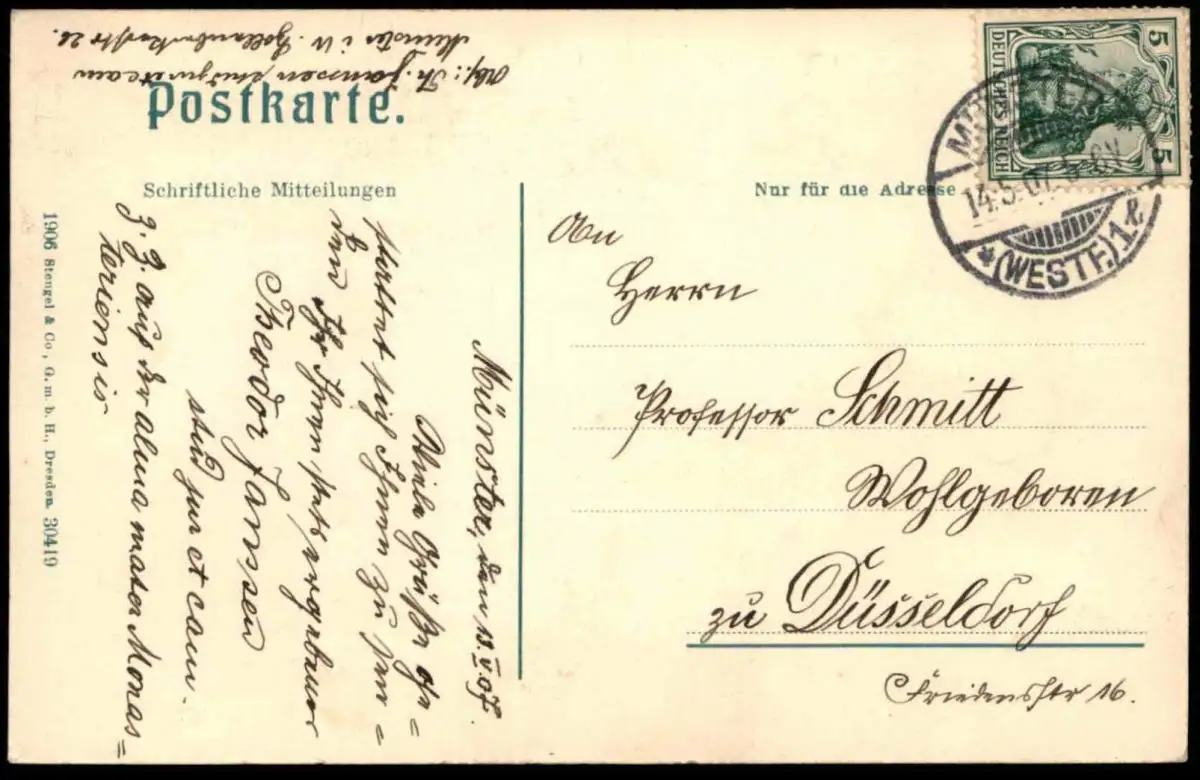 Abs: Th. Janssen stud jur et cam
Münster i W.
Postkarte.
Schriftliche Mitteilungen
Nur für die Adresse
DEUTSCHES REICH
5
5
14.5.07
(WESTF.) 1
Münster, den 13.V.07.
Viele Grüße ge=
stattet sich Ihnen zu sen=
den Ihr Ihnen stets ergebener
Theodor Janssen
stud jur et cam.
z. Z. auf der alma mater Monas=
teriensis
1906 Stengel & Co., G. m. b. H., Dresden. 30419
An
Herrn
Professor Schmitt
Wohlgeboren
zu Düsseldorf
Friedensstr 16.